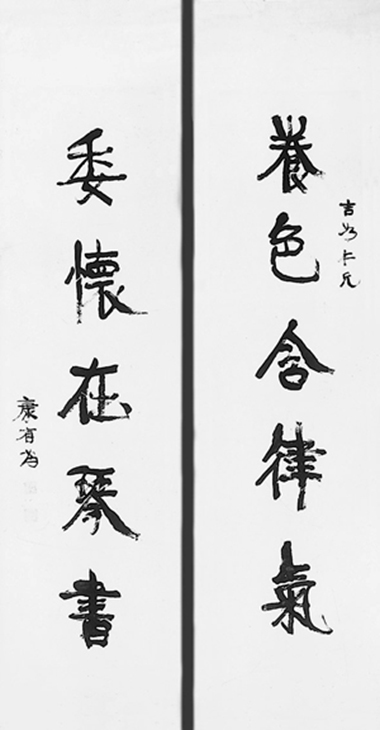 養色含律氣
吉必仁兄
委懷在琴書
康有為